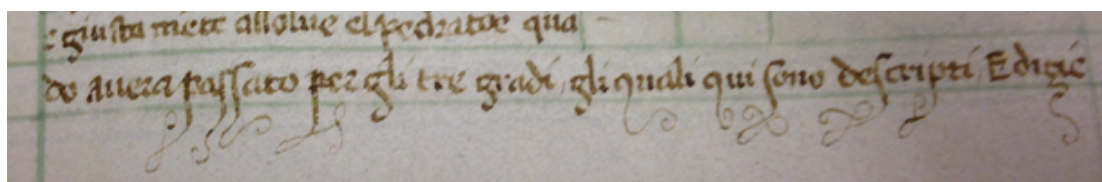 e giusta mẽte assolue el peccatoe quã
do auera passato per gli tre gradi, gli quali qui sono descripti. E digiẽ